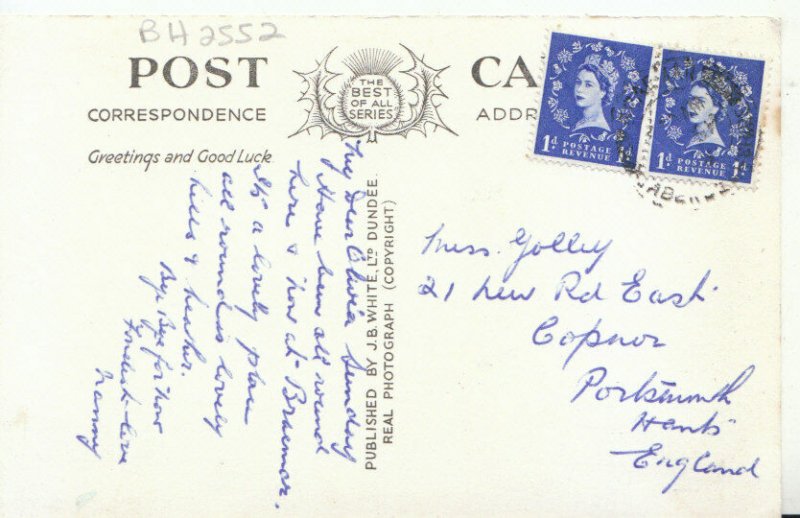 BH2552
POST CA
CORRESPONDENCE
ADDR
THE
BEST
OF ALL
SERIES
Greetings and Good Luck
1d POSTAGE REVENUE 1d
1d POSTAGE REVENUE 1d
PUBLISHED BY J.B. WHITE, LTD DUNDEE.
REAL PHOTOGRAPH (COPYRIGHT)
Sunday
My Dear
Have been all round
here & now at Braemar.
It's a lovely place
all round is lovely
hills & heather.
Bye Bye for now
Fondest love
Nanny
Miss. Golley
21 New Rd East
Copnor
Portsmouth
Hants
England